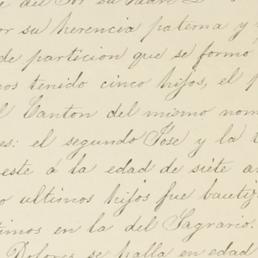 or su herencia paterna y
de particion que se formo
os tenido cinco hijos, el p
l Canton del mismo nom
es: el segundo Jose y la
este a la edad de siete a
o ultimos hijos fue bauti
timos en la del Sagrario.
Dolores se halla en edad